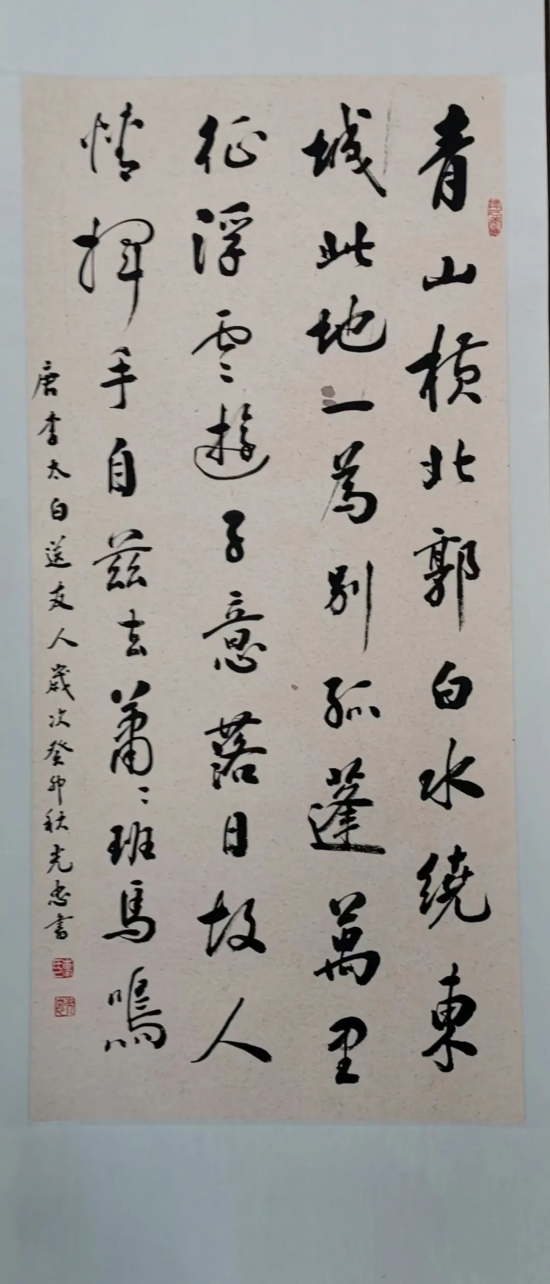 青山橫北郭白水繞東
城此地一為別孤蓬萬里
征浮雲遊子意落日故人
情揮手自茲去蕭〻班馬鳴
唐李太白送友人歲次癸卯秋光忠書